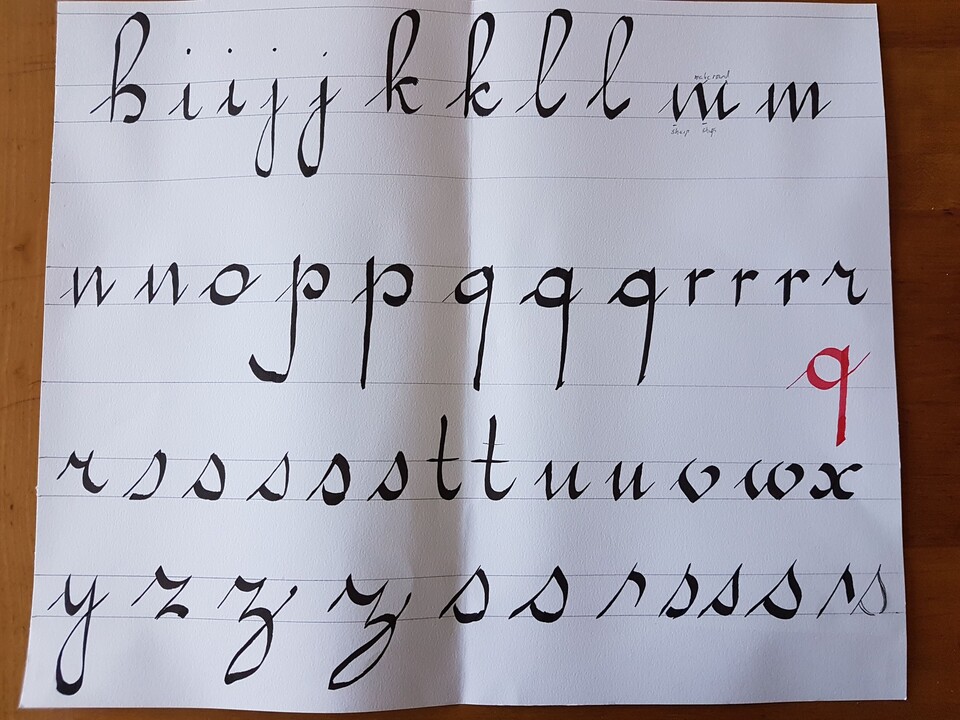 h i i j j k k l l m m
sharp sharp
n n o p p q q q r r r r
q
r s s s s s t t u u v w x
y z z z s s s s s s